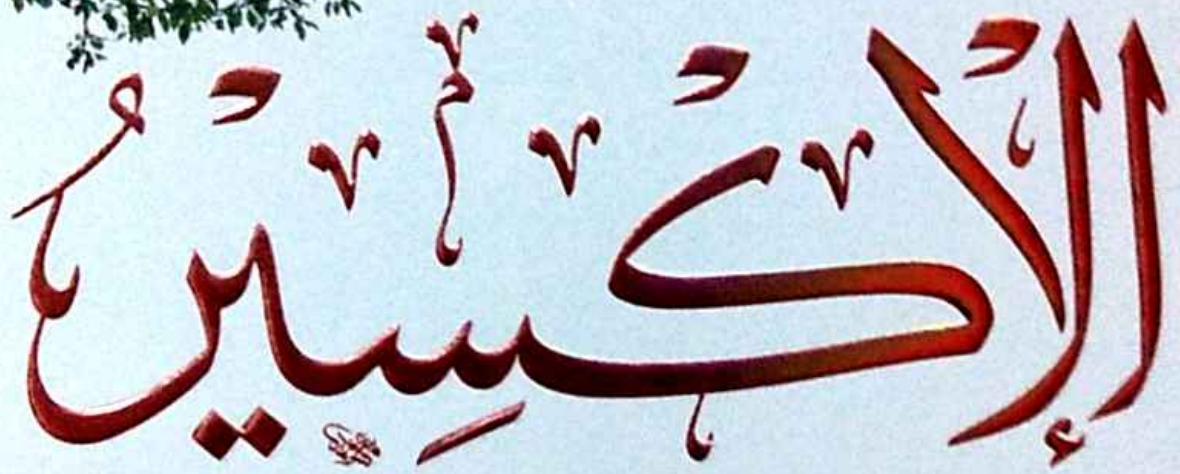 الإكسِيرُ